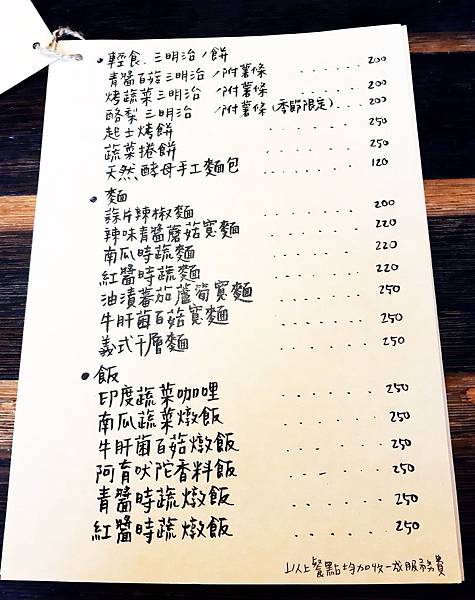 • 輕食. 三明治/餅
青醬百菇三明治/附薯條 ...... 200
烤蔬菜三明治 /附薯條 ..... 200
酪梨三明治 /附薯條(季節限定)... 200
起士烤餅 ...... 250
蔬菜捲餅 ...... 250
天然酵母手工麵包 ...... 120
• 麵
蒜片辣椒麵 ...... 200
辣味青醬蘑菇寬麵 ...... 220
南瓜時蔬麵 ...... 220
紅醬時蔬麵 ...... 220
油漬蕃茄蘆筍寬麵 ...... 250
牛肝菌百菇寬麵 ..... 250
義式千層麵 ..... 250
• 飯
印度蔬菜咖哩 ...... 250
南瓜蔬菜燉飯 ...... 250
牛肝菌百菇燉飯 ...... 250
阿育吠陀香料飯 ...... 250
青醬時蔬燉飯 ...... 250
紅醬時蔬燉飯 ...... 250
以上餐點均加收一成服務費